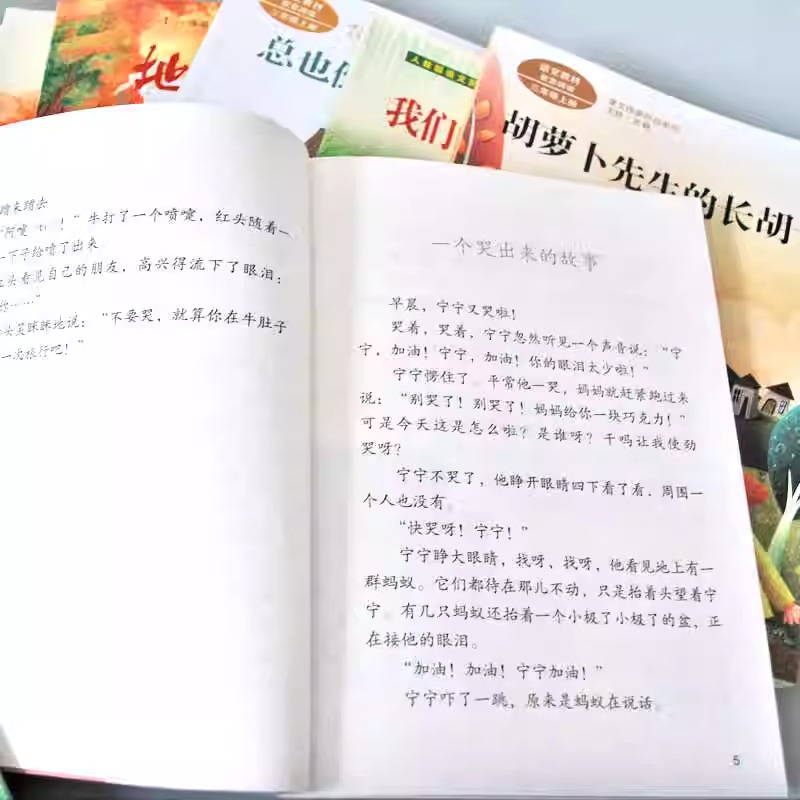 地
总也
我们
语文教材
三年级上册
胡萝卜先生的长胡
蹭来蹭去
”牛打了一个喷嚏，红头随着一
一下子给喷了出来
头看见自己的朋友，高兴得流下了眼泪：
你……”
头笑眯眯地说：“不要哭，就算你在牛肚子
一次旅行吧！”
一个哭出来的故事
早晨，宁宁又哭啦！
哭着，哭着，宁宁忽然听见一个声音说：“宁
宁，加油！宁宁，加油！你的眼泪太少啦！”
宁宁愣住了。平常他一哭，妈妈就赶紧跑过来
说：“别哭了！别哭了！妈妈给你一块巧克力！”
可是今天这是怎么啦？是谁呀？干吗让我使劲
哭呀？
宁宁不哭了，他睁开眼睛四下看了看，周围一
个人也没有。
“快哭呀！宁宁！”
宁宁睁大眼睛，找呀、找呀，他看见地上有一
群蚂蚁。它们都待在那儿不动，只是抬着头望着宁
宁。有几只蚂蚁还抬着一个小极了小极了的盆，正
在接他的眼泪。
“加油！加油！宁宁加油！”
宁宁吓了一跳，原来是蚂蚁在说话。
5